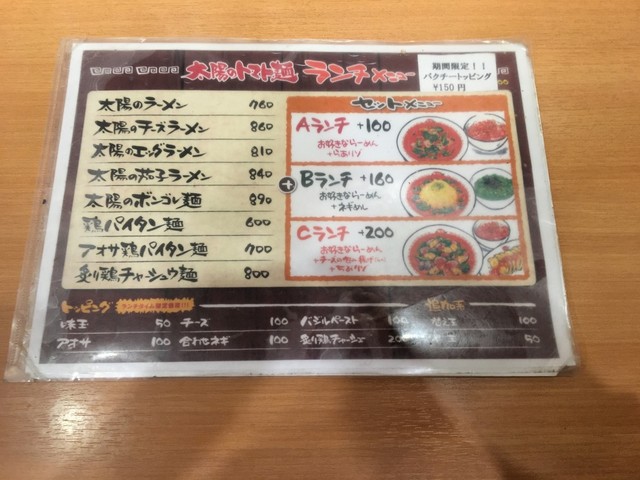 太陽のトマト麺 ランチメニュー
期間限定！！
パクチートッピング
¥150円
太陽のラーメン 760
太陽のチーズラーメン 860
太陽のエッグラーメン 810
太陽の茄子ラーメン 840
太陽のボンゴレ麺 890
鶏パイタン麺 600
アオサ鶏パイタン麺 700
炙り鶏チャーシュウ麺 800
+
セットメニュー
Aランチ +100
お好きならーめん
+らぁリゾ
Bランチ +160
お好きならーめん
+ネギめし
Cランチ +200
お好きならーめん
+らぁリゾ
トッピング
味玉 50 チーズ 100 バジルペースト 100 替え玉 100
アオサ 100 合わせネギ 100 炙り鶏チャーシュー 200 50